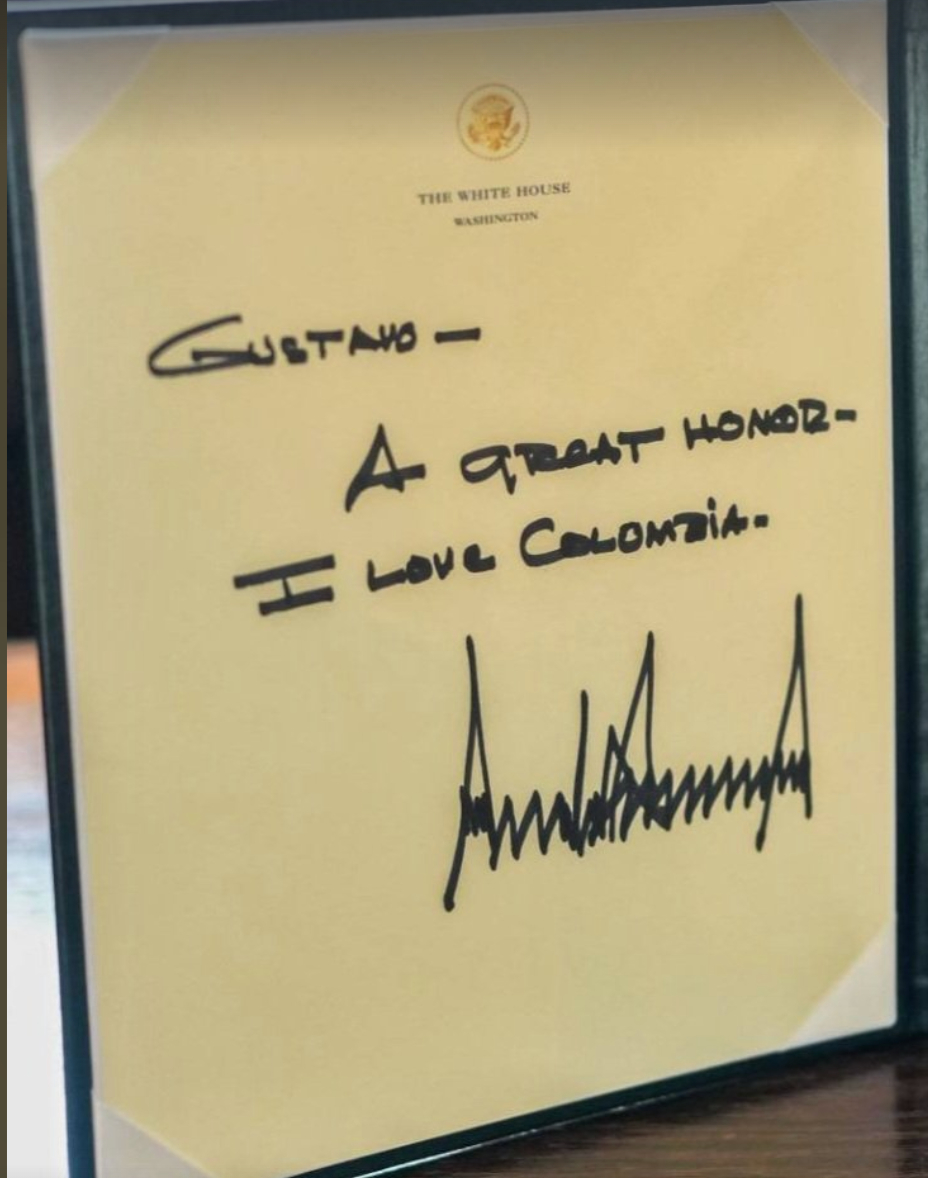 THE WHITE HOUSE
WASHINGTON
GUSTAVO —
A GREAT HONOR -
I LOVE COLOMBIA.